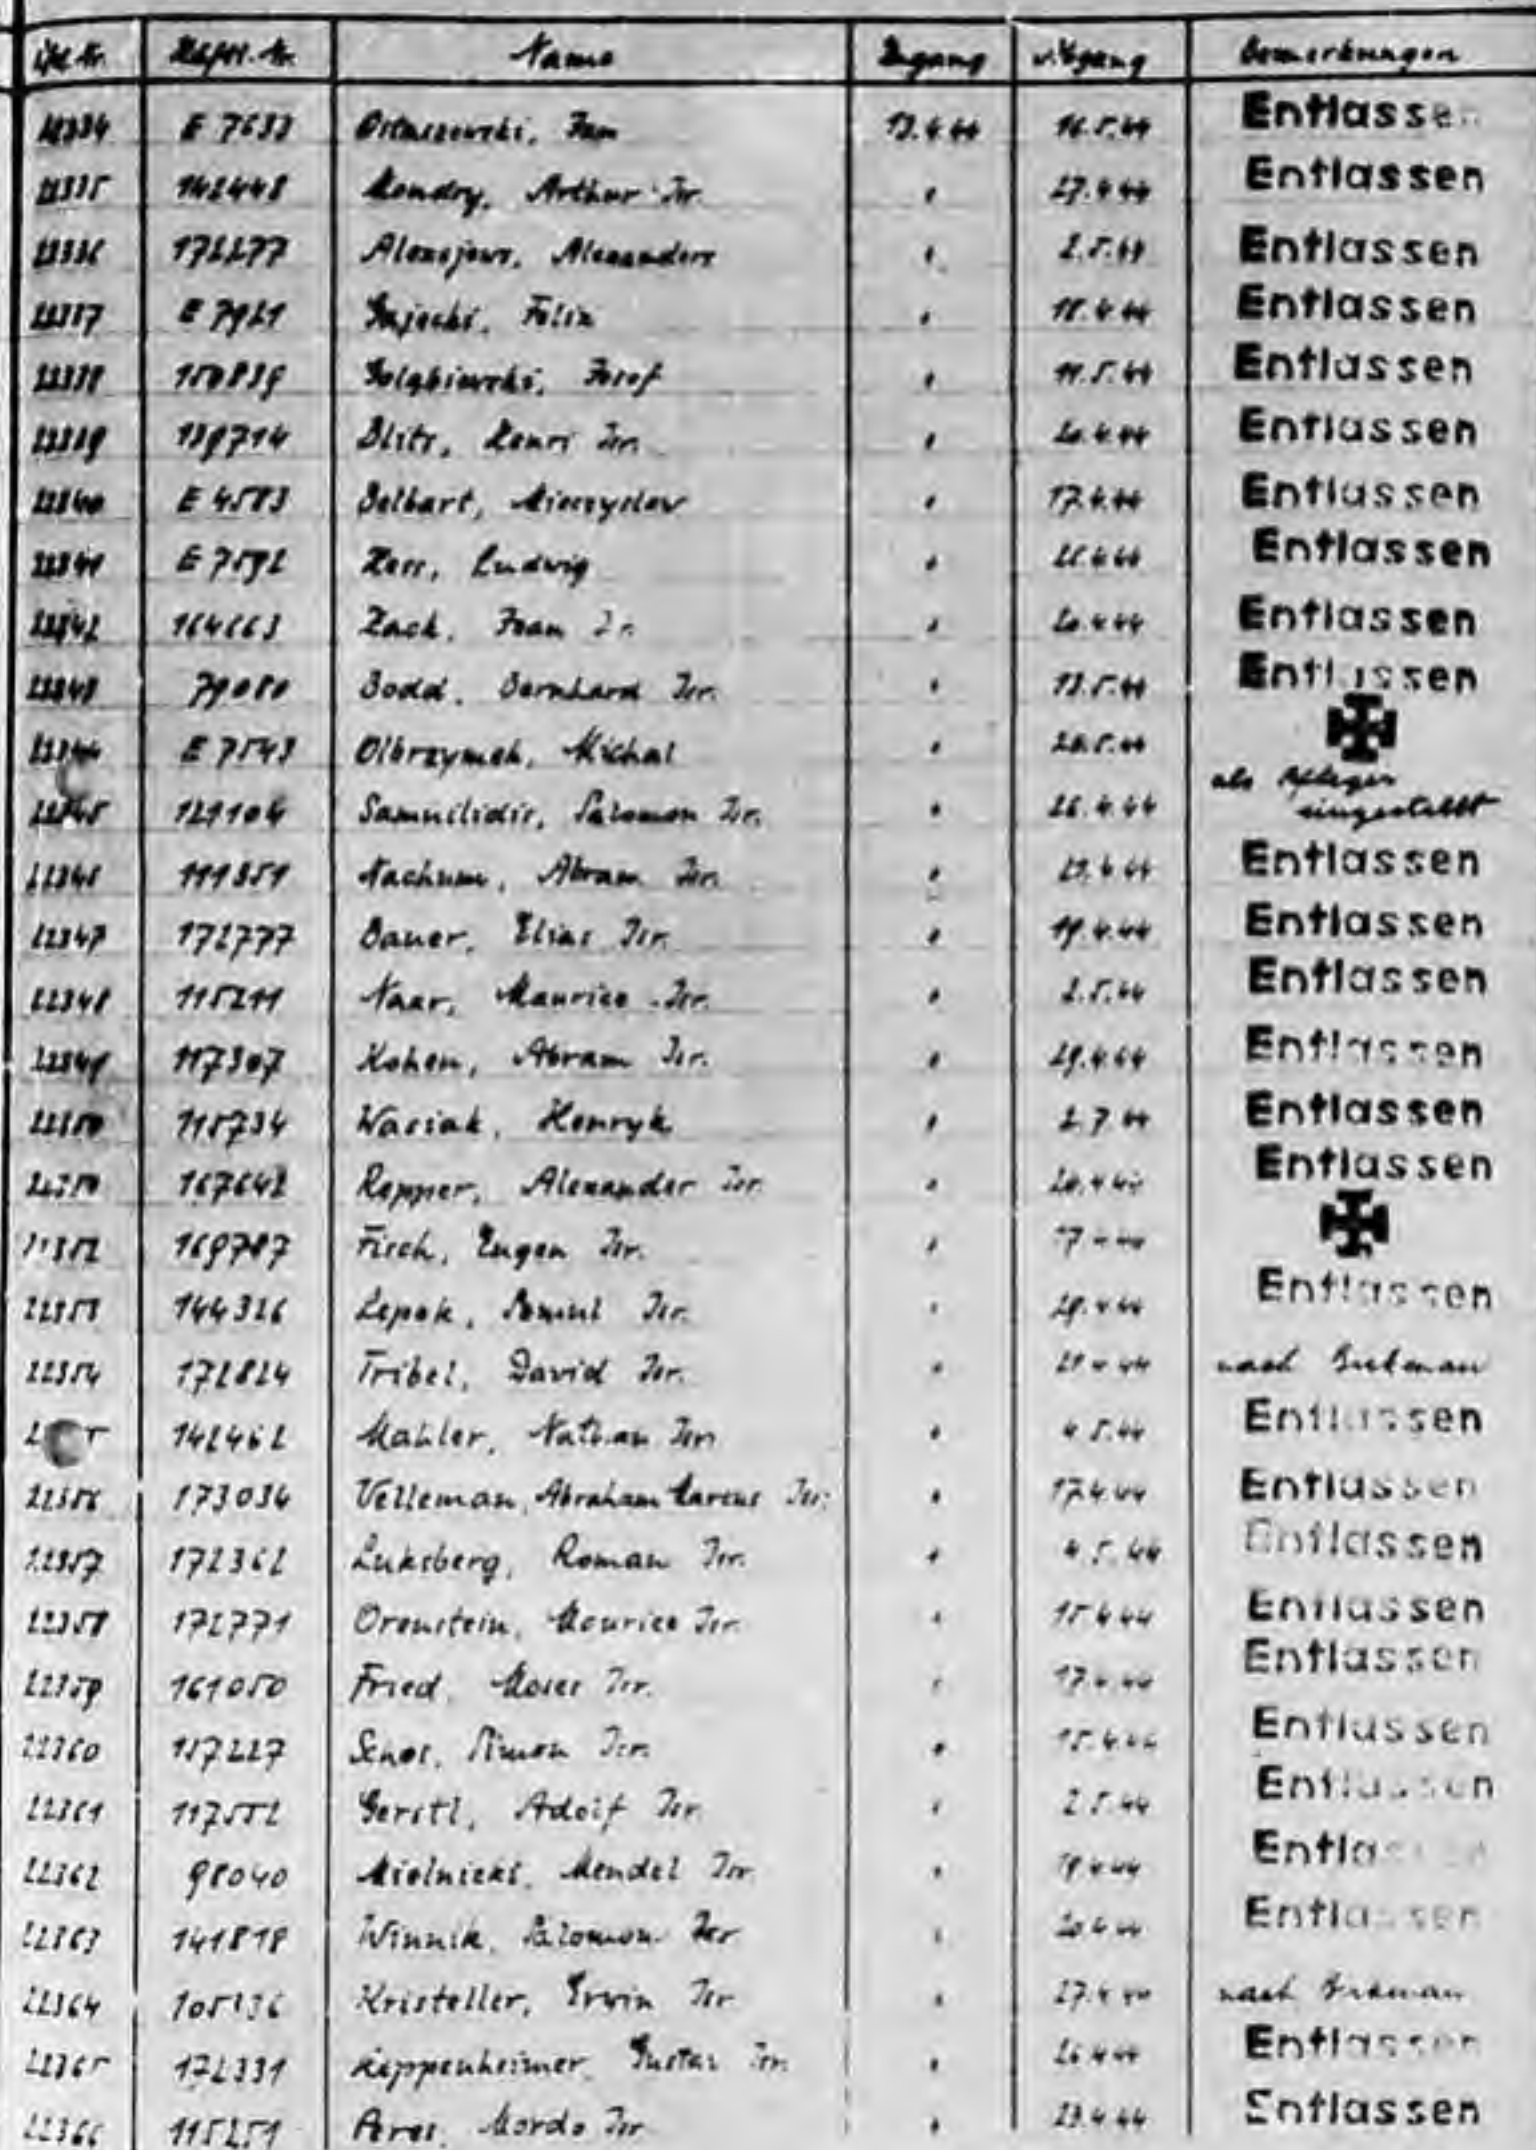 Lfd. Nr. Häftl.-Nr. Name Zugang Abgang Bemerkungen
22334 E 7633 Ostaszewski, Jan 13.4.44 16.5.44 Entlassen
22335 142448 Mondry, Arthur Isr. " 27.4.44 Entlassen
22336 172277 Alexejews, Alexanders " 2.5.44 Entlassen
22337 E 7921 Gajecki, Felix " 18.4.44 Entlassen
22338 150839 Golabiewski, Josef " 11.5.44 Entlassen
22339 139714 Blitz, Henri Isr. " 20.4.44 Entlassen
22340 E 4583 Delbart, Mieczyslaw " 17.4.44 Entlassen
22341 E 7592 Herr, Ludwig " 25.4.44 Entlassen
22342 164663 Zack, Jean Isr. " 20.4.44 Entlassen
22343 79080 Dodd, Bernhard Isr. " 13.5.44 Entlassen
22344 E 7543 Olbrzymek, Michal " 20.5.44
22345 121104 Samuilidis, Salomon Isr. " 26.4.44 als Pfleger eingestellt
22346 111851 Nachum, Abram Isr. " 23.4.44 Entlassen
22347 172777 Bauer, Elias Isr. " 19.4.44 Entlassen
22348 115211 Naar, Maurice Isr. " 2.5.44 Entlassen
22349 117307 Kohen, Abram Isr. " 29.4.44 Entlassen
22350 115734 Wasiak, Henryk " 2.7.44 Entlassen
22351 167642 Repper, Alexander Isr. " 20.4.44 Entlassen
22352 169787 Fisch, Eugen Isr. " 17.4.44
22353 144326 Lepek, Samuel Isr. " 29.4.44 Entlassen
22354 172824 Tribel, David Isr. " 21.4.44 nach Birkenau
142462 Mahler, Nathan Isr. " 4.5.44 Entlassen
22356 173034 Velleman, Abraham Marcus Isr. " 17.4.44 Entlassen
22357 172362 Luksberg, Roman Isr. " 4.5.44 Entlassen
22358 172771 Orenstein, Maurice Isr. " 15.4.44 Entlassen
22359 161050 Fried, Moses Isr. " 17.4.44 Entlassen
22360 157227 Senor, Simon Isr. " 15.4.44 Entlassen
22361 117552 Gerstl, Adolf Isr. " 2.5.44 Entlassen
22362 98040 Mielnicki, Mendel Isr. " 19.4.44 Entlassen
22363 141818 Winnik, Salomon Isr. " 20.4.44 Entlassen
22364 105136 Kristeller, Erwin Isr. " 27.4.44 nach Birkenau
22365 172331 Keppenheimer, Gustav Isr. " 26.4.44 Entlassen
22366 115251 Peres, Mordo Isr. " 23.4.44 Entlassen